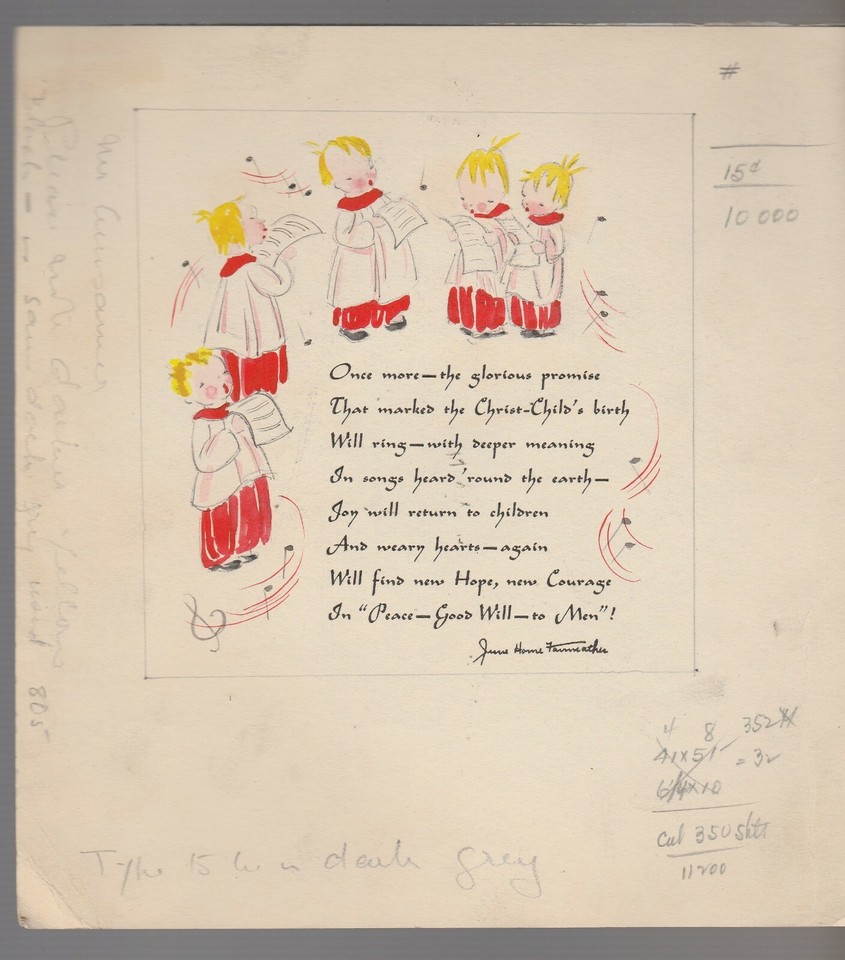 #
15¢
10 000
Once more—the glorious promise
That marked the Christ-Child's birth
Will ring—with deeper meaning
In songs heard 'round the earth—
Joy will return to children
And weary hearts—again
Will find new Hope, new Courage
In “Peace—Good Will—to Men”!
June Home Fairweather
4 8 352
41x51 = 32
6 1/4 x 10
Cut 350 shts
11200
Type is to be in dark grey
dark grey used 805